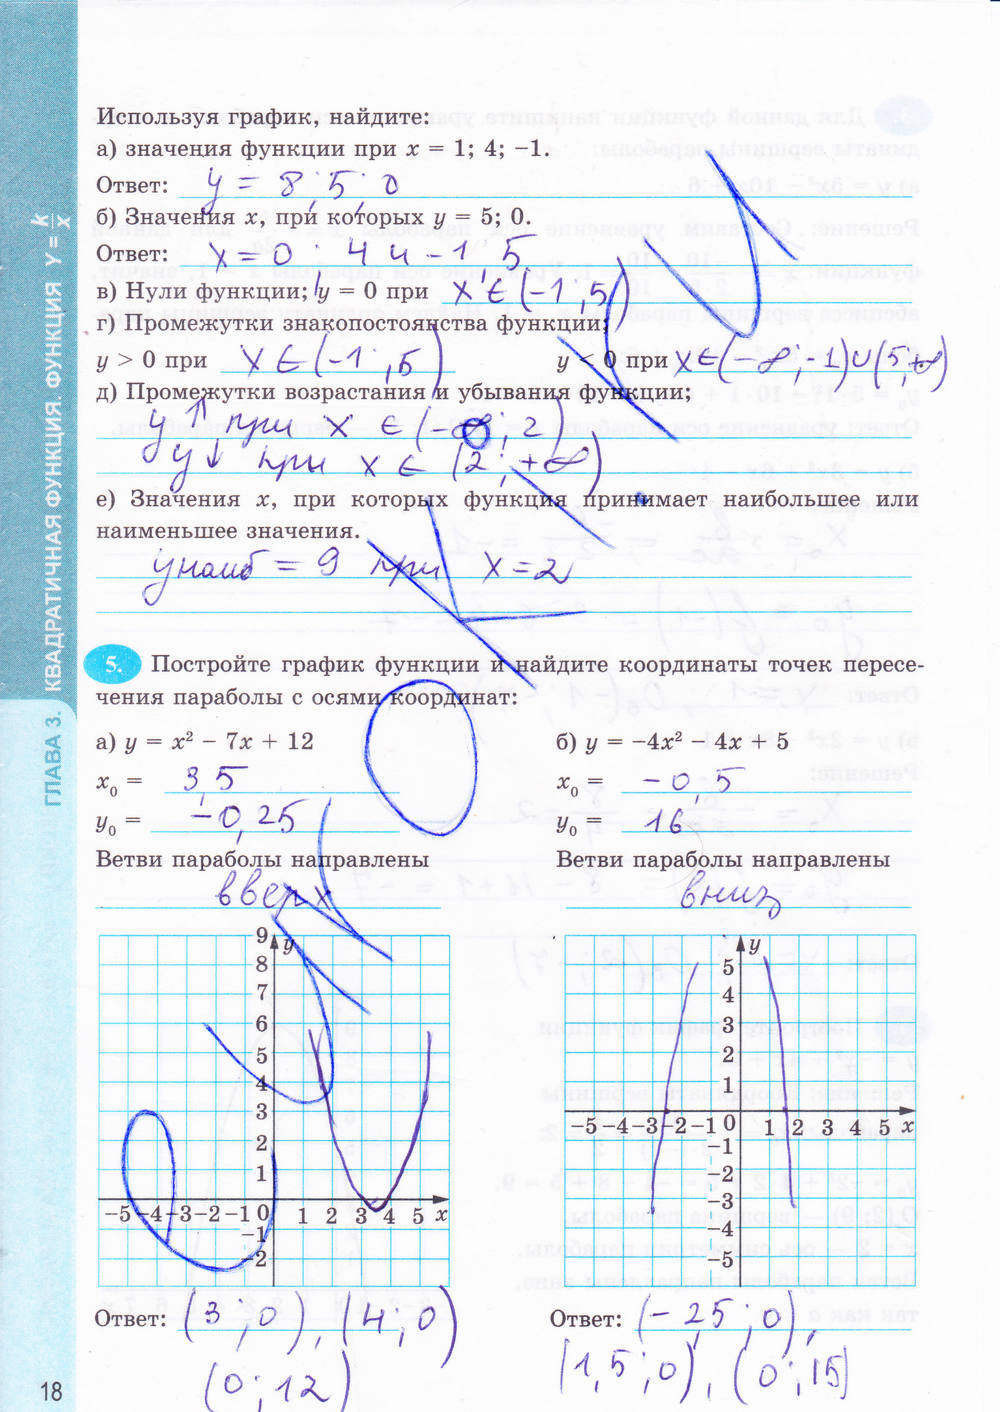 Используя график, найдите:
а) значения функции при x = 1; 4; −1.
Ответ: y = 8; 5; 0
б) Значения x, при которых y = 5; 0.
Ответ: x = 0; 4 и −1, 5
в) Нули функции; y = 0 при x ∈ (−1; 5)
г) Промежутки знакопостоянства функции;
y > 0 при x ∈ (−1; 5) y < 0 при x ∈ (−∞; −1) ∪ (5; +∞)
д) Промежутки возрастания и убывания функции;
y↑ при x ∈ (−∞; 2)
y↓ при x ∈ (2; +∞)
е) Значения x, при которых функция принимает наибольшее или
наименьшее значения.
yнаиб = 9 при x = 2
5. Постройте график функции и найдите координаты точек пересе-
чения параболы с осями координат:
а) y = x² − 7x + 12
x₀ = 3,5
y₀ = −0,25
Ветви параболы направлены
вверх
9 y
8
7
6
5
4
3
2
1
−5 −4 −3 −2 −1 0 1 2 3 4 5 x
−1
−2
Ответ: (3; 0), (4; 0)
(0; 12)
б) y = −4x² − 4x + 5
x₀ = −0,5
y₀ = 16
Ветви параболы направлены
вниз
y
5
4
3
2
1
−5 −4 −3 −2 −1 0 1 2 3 4 5 x
−1
−2
−3
−4
−5
Ответ: (−25; 0),
(1,5; 0), (0; 15)
ГЛАВА 3. КВАДРАТИЧНАЯ ФУНКЦИЯ. ФУНКЦИЯ Y = k/x
18